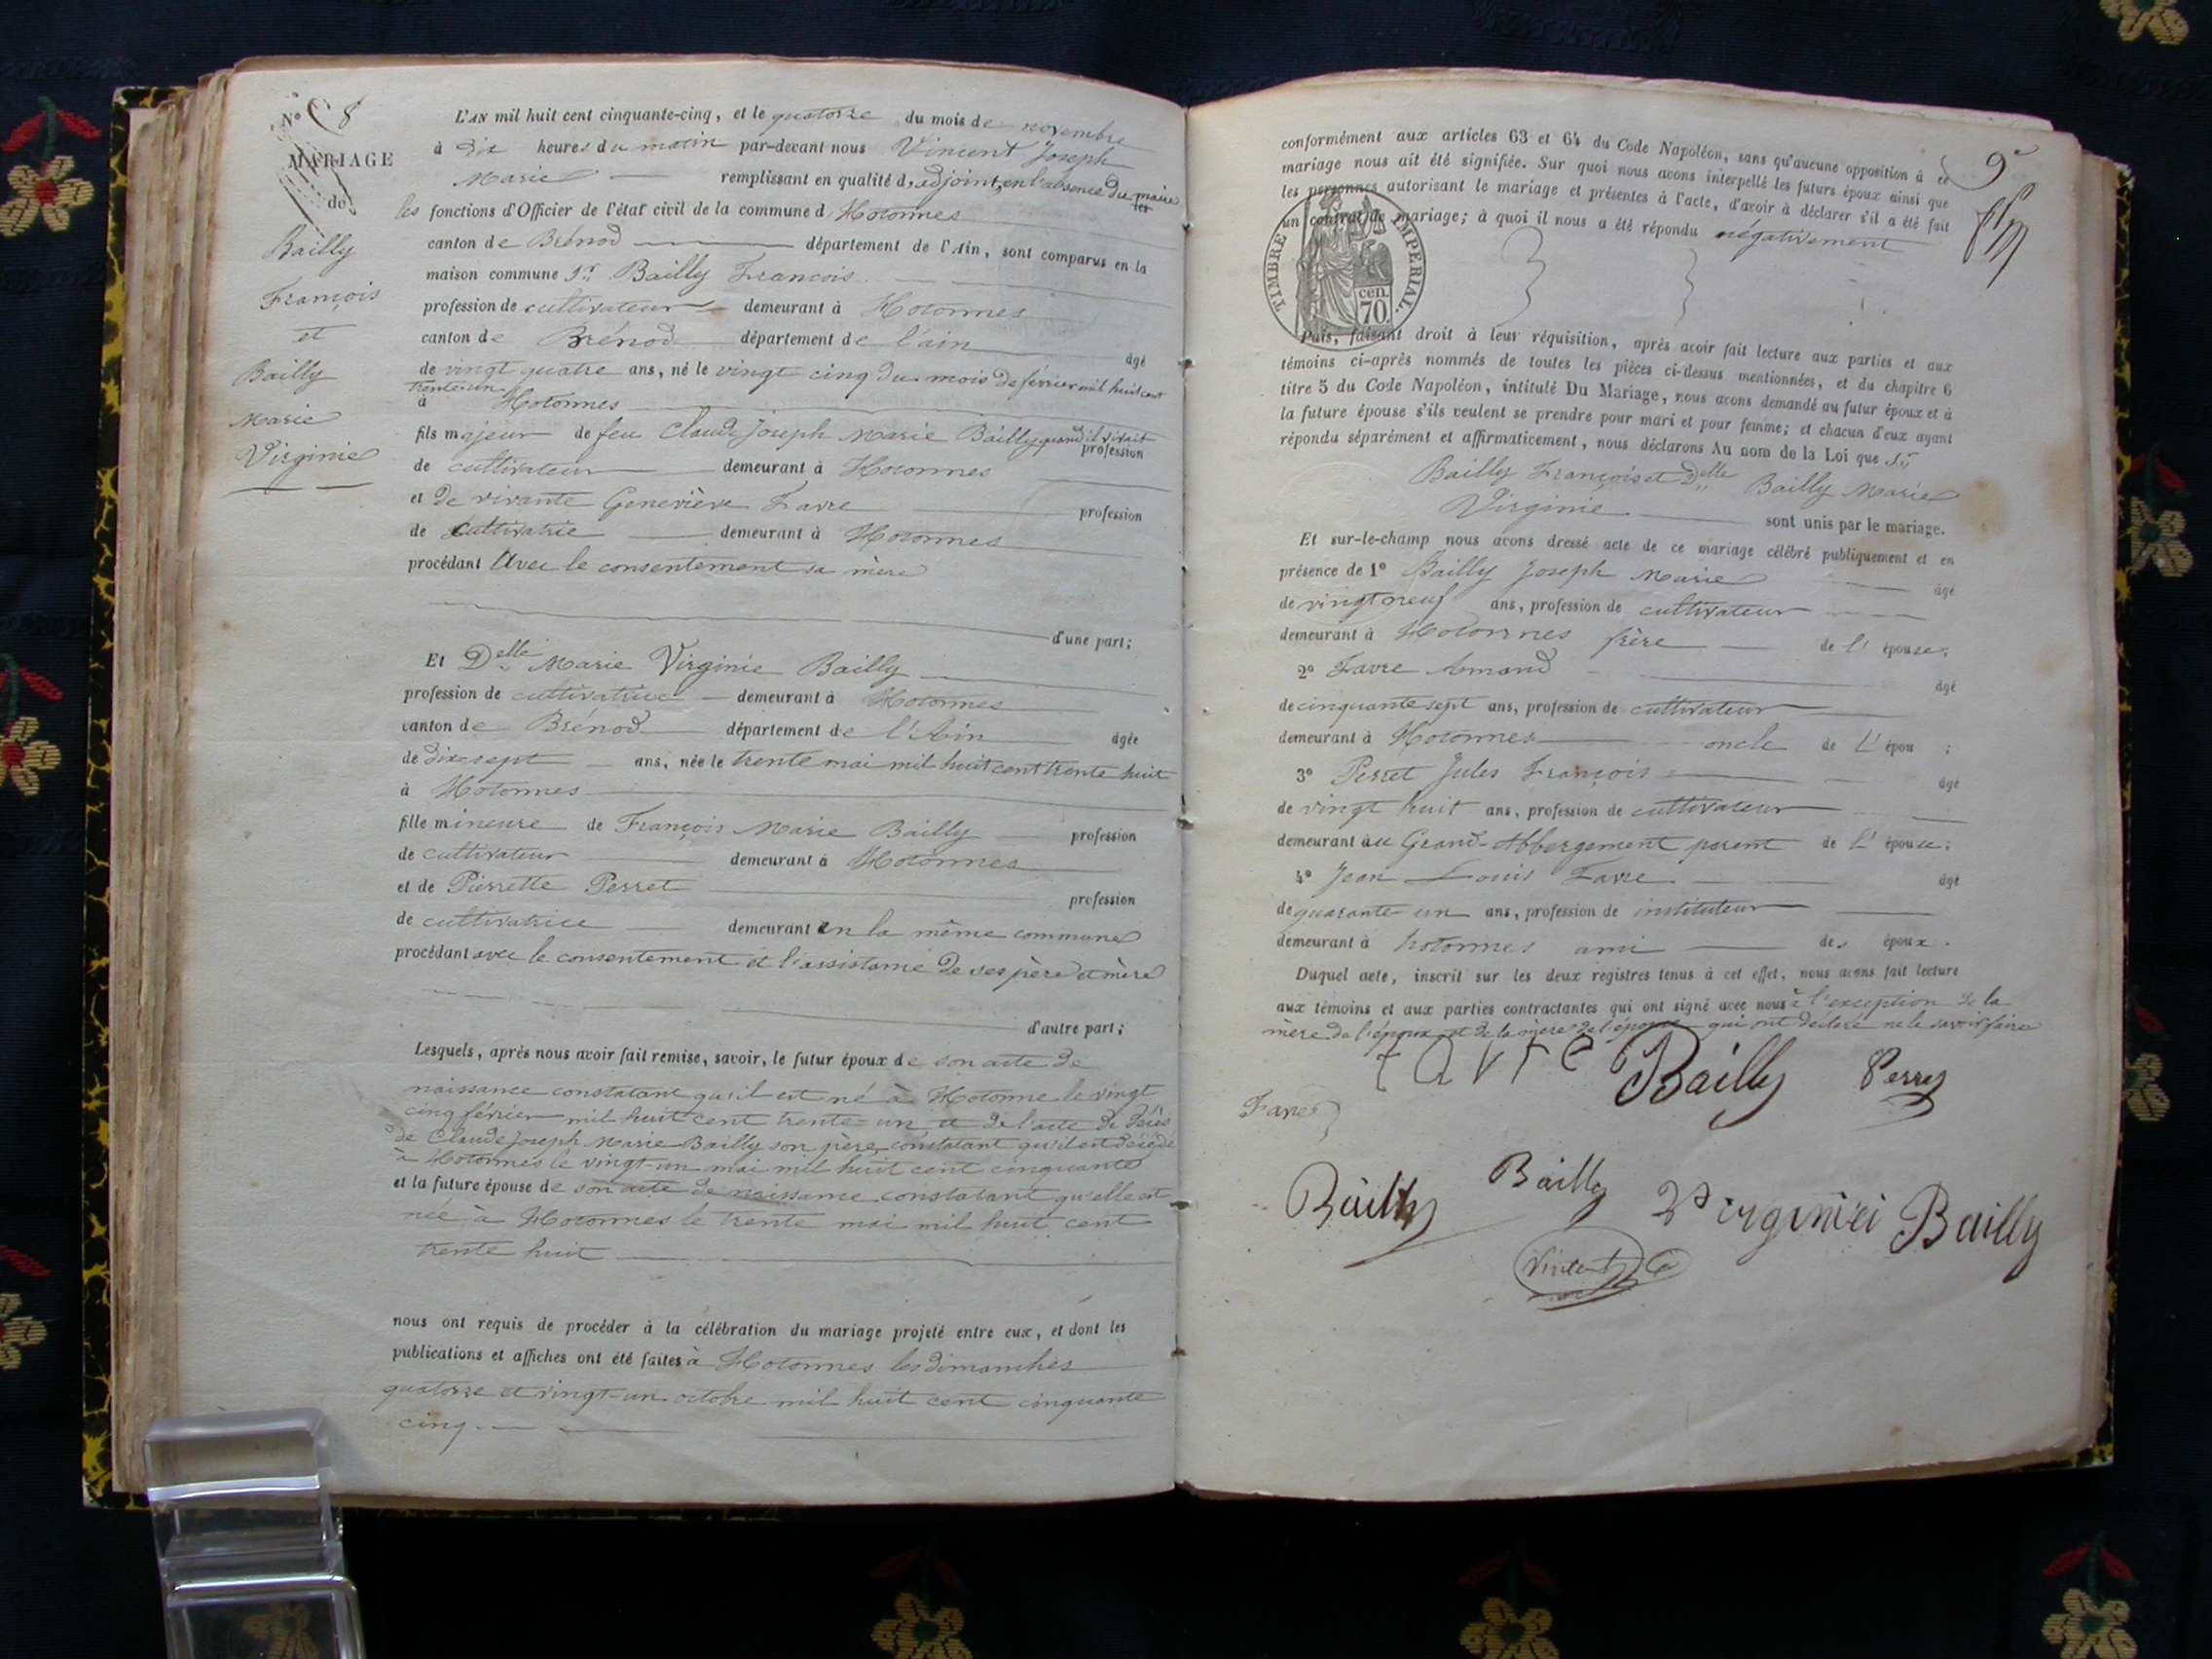 N° 8
MARIAGE
de
Bailly
François
et
Bailly
Marie
Virginie
L'AN mil huit cent cinquante-cinq, et le quatorze du mois de novembre
à dix heures du matin par-devant nous Vincent Joseph
Marie remplissant en qualité d'adjoint, en l'absence du maire
les fonctions d'Officier de l'état civil de la commune d Hotonnes
canton de Brénod département de l'Ain, sont comparus en la
maison commune Sr Bailly François
profession de cultivateur demeurant à Hotonnes
canton de Brénod département de l'ain âgé
de vingt quatre ans, né le vingt cinq du mois de février mil huit cent
trente-un
à Hotonnes
fils majeur de feu Claude Joseph Marie Bailly quand il vivait profession
de cultivateur demeurant à Hotonnes
et de vivante Geneviève Favre profession
de cultivatrie demeurant à Hotonnes
procédant Avec le consentement sa mère
d'une part;
Et Delle Marie Virginie Bailly
profession de cultivatrice demeurant à Hotonnes
canton de Brénod département de l'Ain âgée
de dix-sept ans, née le trente mai mil huit cent trente huit
à Hotonnes
fille mineure de François Marie Bailly profession
de cultivateur demeurant à Hotonnes
et de Pierrette Perret profession
de cultivatrice demeurant en la même commune
procédant avec le consentement et l'assistance de ses père et mère
d'autre part;
Lesquels, après nous avoir fait remise, savoir, le futur époux de son acte de
naissance constatant qu'il est né à Hotonne le vingt
cinq février mil huit cent trente-un et de l'acte de décès
de Claude Joseph Marie Bailly son père, constatant qu'il est décédé
à Hotonnes le vingt-un mai mil huit cent cinquante
et la future épouse de son acte de naissance constatant qu'elle est
née à Hotonnes le trente mai mil huit cent
trente huit
nous ont requis de procéder à la célébration du mariage projeté entre eux, et dont les
publications et affiches ont été faites à Hotonnes les dimanches
quatorze et vingt-un octobre mil huit cent cinquante
cinq
9e
conformément aux articles 63 et 64 du Code Napoléon, sans qu'aucune opposition à ce
mariage nous ait été signifiée. Sur quoi nous avons interpellé les futurs époux ainsi que
les personnes autorisant le mariage et présentes à l'acte, d'avoir à déclarer s'il a été fait
un contrat de mariage; à quoi il nous a été répondu négativement
TIMBRE IMPERIAL.
cen.
70.
Puis, faisant droit à leur réquisition, après avoir fait lecture aux parties et aux
témoins ci-après nommés de toutes les pièces ci-dessus mentionnées, et du chapitre 6
titre 5 du Code Napoléon, intitulé Du Mariage, nous avons demandé au futur époux et à
la future épouse s'ils veulent se prendre pour mari et pour femme; et chacun d'eux ayant
répondu séparément et affirmativement, nous déclarons Au nom de la Loi que Sr
Bailly François et Delle Bailly Marie
Virginie sont unis par le mariage.
Et sur-le-champ nous avons dressé acte de ce mariage célébré publiquement et en
présence de 1° Bailly Joseph Marie âgé
de vingt neuf ans, profession de cultivateur
demeurant à Hotonnes frère de l' épouse;
2° Favre Amand âgé
de cinquante sept ans, profession de cultivateur
demeurant à Hotonnes oncle de L' épou ;
3° Perret Jules François âgé
de vingt huit ans, profession de cultivateur
demeurant au Grand-Abbergement parent de L' épouse;
4° Jean Louis Favre âgé
de quarante-un ans, profession de instituteur
demeurant à hotonnes ami des époux.
Duquel acte, inscrit sur les deux registres tenus à cet effet, nous avons fait lecture
aux témoins et aux parties contractantes qui ont signé avec nous à l'exception de la
mère de l'époux et de la mère de l'épouse qui ont déclaré ne le savoir faire
favre Bailly Perret
Favre
Bailly Bailly Virginiei Bailly
Vincent